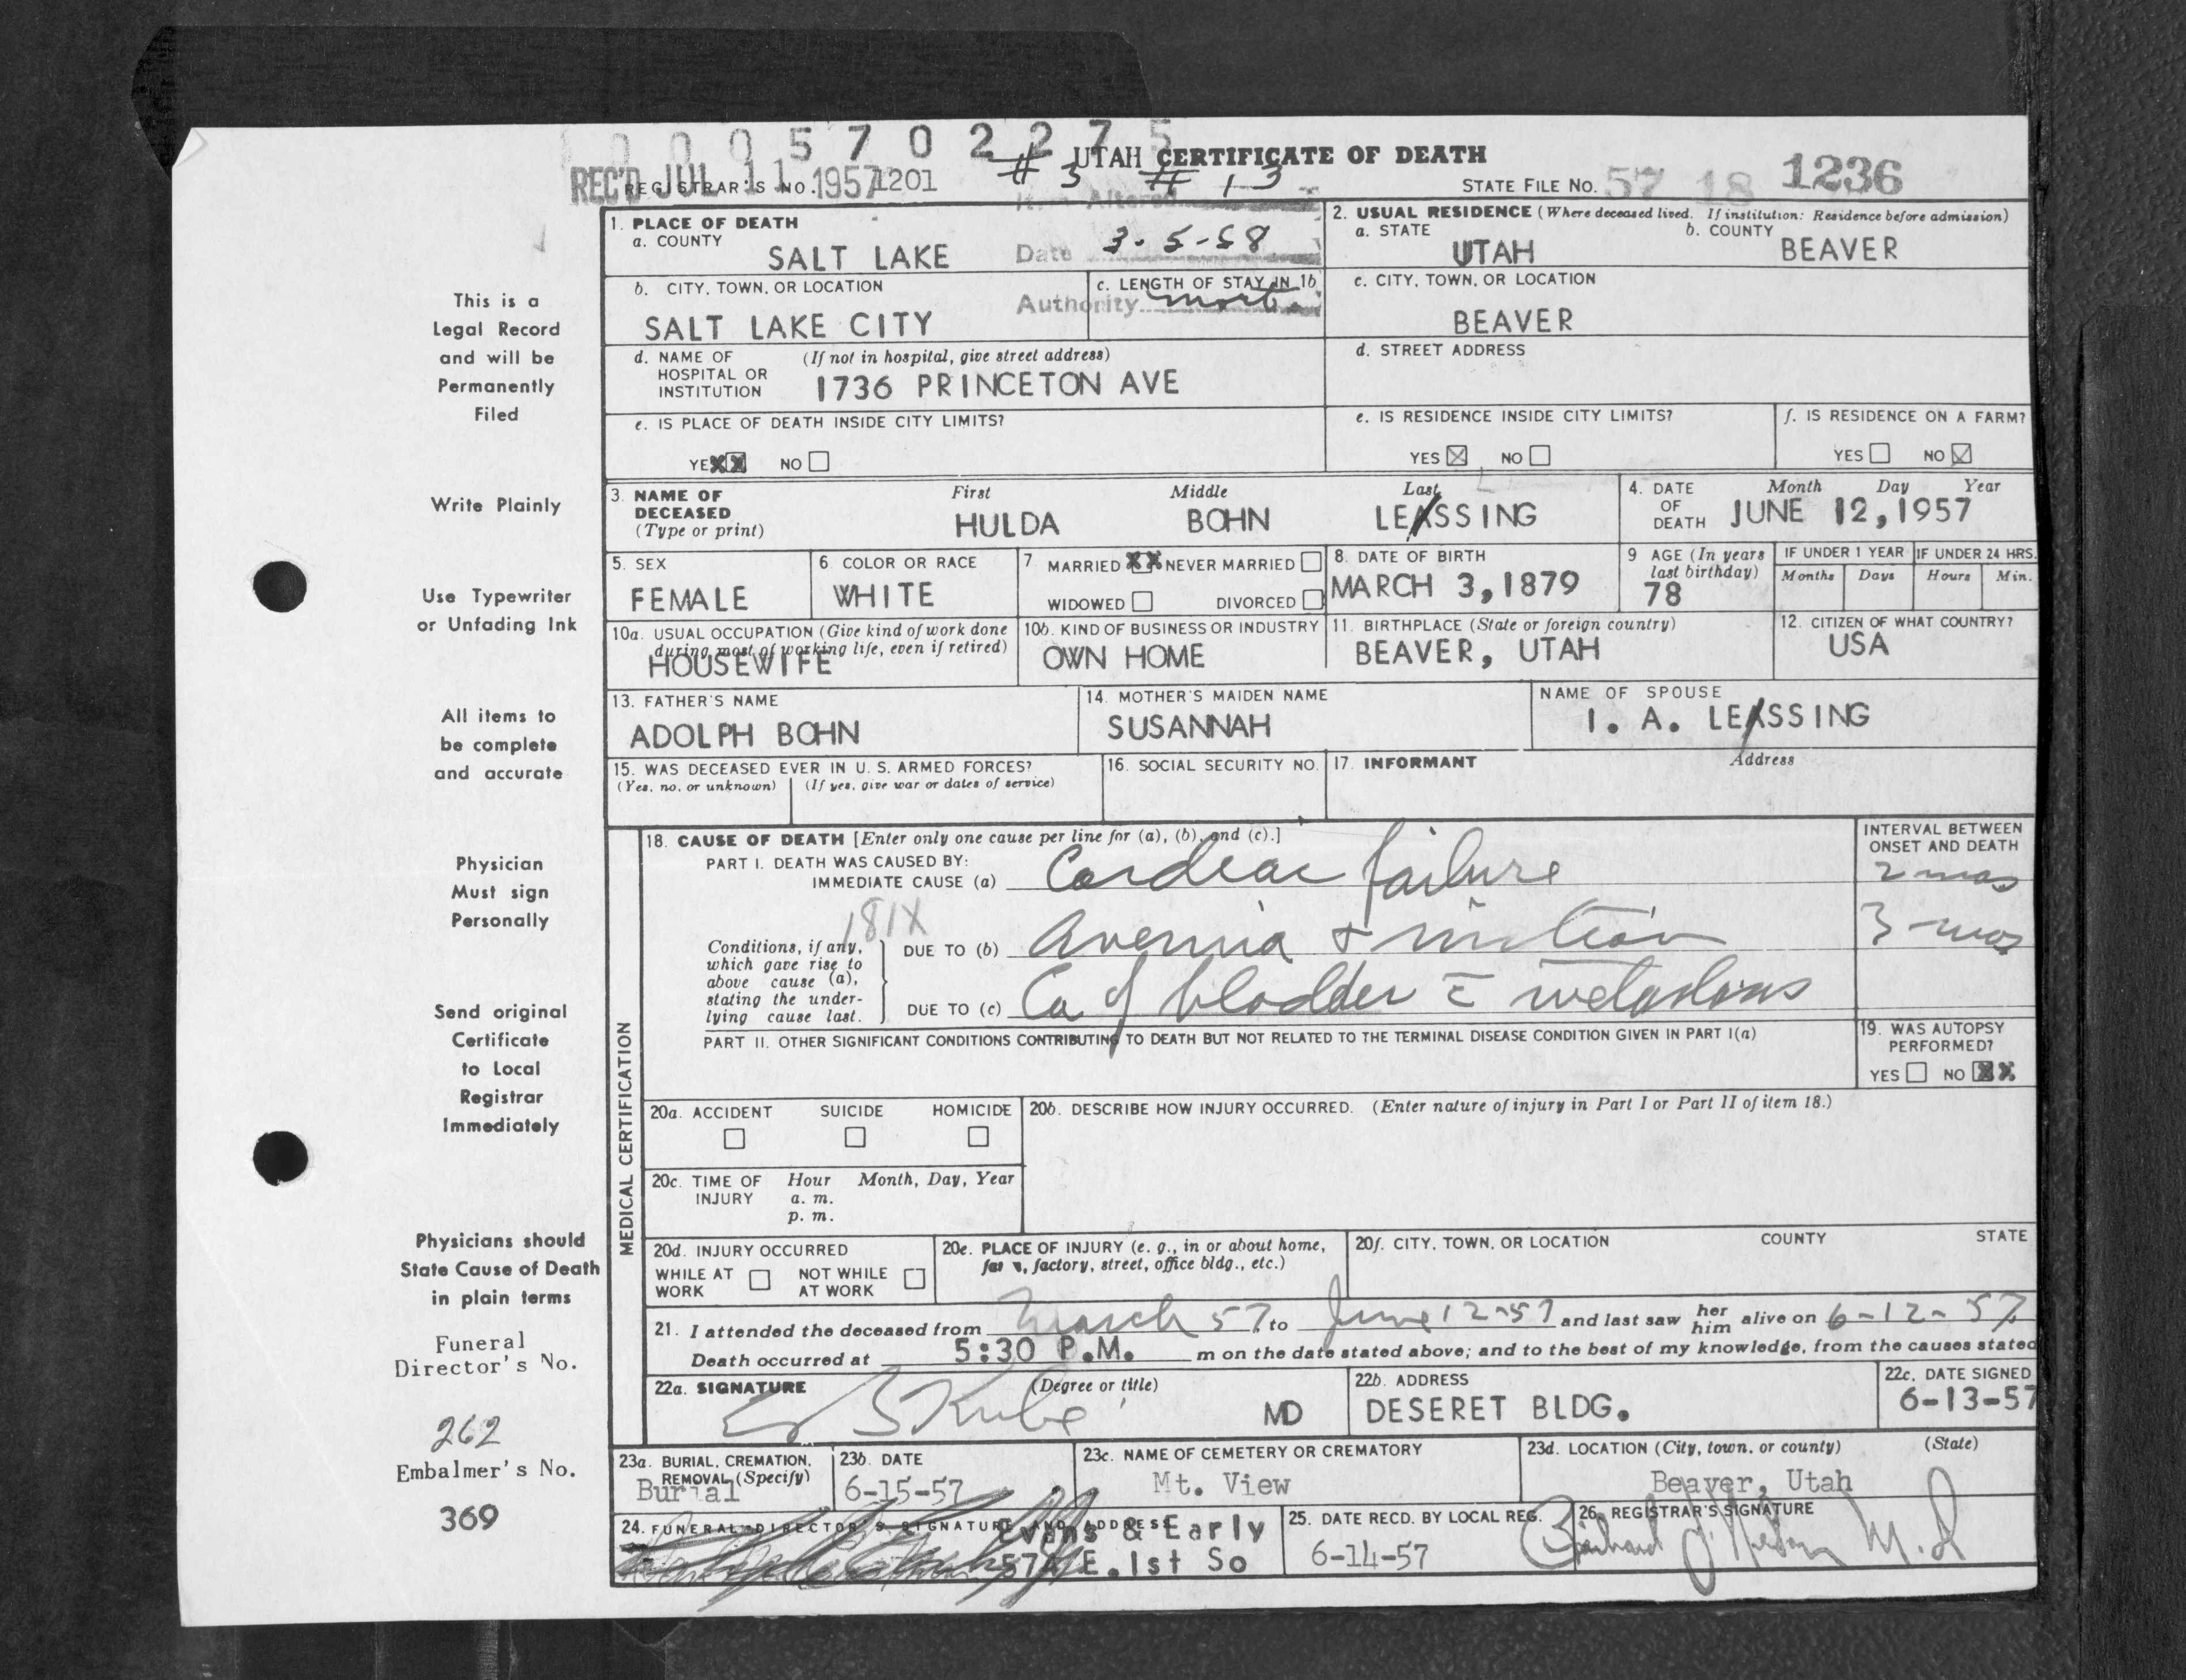 0 0 0 5 7 0 2 2 7 5
UTAH CERTIFICATE OF DEATH
REC'D JUL 11 1957
REGISTRAR'S NO. 1201
# 3 # 13
STATE FILE NO. 57 18 1236
Item Altered
1. PLACE OF DEATH
a. COUNTY
SALT LAKE
Date 3-5-58
2. USUAL RESIDENCE (Where deceased lived. If institution: Residence before admission)
a. STATE b. COUNTY
UTAH BEAVER
b. CITY, TOWN, OR LOCATION
SALT LAKE CITY
c. LENGTH OF STAY IN 1b
Authority
c. CITY, TOWN, OR LOCATION
BEAVER
d. NAME OF HOSPITAL OR INSTITUTION (If not in hospital, give street address)
1736 PRINCETON AVE
d. STREET ADDRESS
e. IS PLACE OF DEATH INSIDE CITY LIMITS?
YES XX NO
e. IS RESIDENCE INSIDE CITY LIMITS?
YES X NO
f. IS RESIDENCE ON A FARM?
YES NO X
3. NAME OF DECEASED (Type or print)
First Middle Last
HULDA BOHN LEASSING
4. DATE OF DEATH Month Day Year
JUNE 12, 1957
5. SEX
FEMALE
6 COLOR OR RACE
WHITE
7 MARRIED XX NEVER MARRIED
WIDOWED DIVORCED
8. DATE OF BIRTH
MARCH 3, 1879
9 AGE (In years last birthday)
78
IF UNDER 1 YEAR IF UNDER 24 HRS.
Months Days Hours Min.
10a. USUAL OCCUPATION (Give kind of work done during most of working life, even if retired)
HOUSEWIFE
10b. KIND OF BUSINESS OR INDUSTRY
OWN HOME
11. BIRTHPLACE (State or foreign country)
BEAVER, UTAH
12. CITIZEN OF WHAT COUNTRY?
USA
13. FATHER'S NAME
ADOLPH BOHN
14. MOTHER'S MAIDEN NAME
SUSANNAH
NAME OF SPOUSE
I. A. LEASSING
15. WAS DECEASED EVER IN U. S. ARMED FORCES?
(Yes, no, or unknown) (If yes, give war or dates of service)
16. SOCIAL SECURITY NO.
17. INFORMANT Address
MEDICAL CERTIFICATION
18. CAUSE OF DEATH [Enter only one cause per line for (a), (b), and (c).]
PART I. DEATH WAS CAUSED BY:
IMMEDIATE CAUSE (a) Cardiac failure
INTERVAL BETWEEN ONSET AND DEATH
2 mos
181X
Conditions, if any, which gave rise to above cause (a), stating the underlying cause last.
DUE TO (b) Anemia +
3 mos
DUE TO (c) Ca of bladder c̄ metastasis
PART II. OTHER SIGNIFICANT CONDITIONS CONTRIBUTING TO DEATH BUT NOT RELATED TO THE TERMINAL DISEASE CONDITION GIVEN IN PART I(a)
19. WAS AUTOPSY PERFORMED?
YES NO XX
20a. ACCIDENT SUICIDE HOMICIDE
20b. DESCRIBE HOW INJURY OCCURRED. (Enter nature of injury in Part I or Part II of item 18.)
20c. TIME OF INJURY Hour Month, Day, Year
a. m.
p. m.
20d. INJURY OCCURRED
WHILE AT WORK NOT WHILE AT WORK
20e. PLACE OF INJURY (e. g., in or about home, farm, factory, street, office bldg., etc.)
20f. CITY, TOWN, OR LOCATION COUNTY STATE
21. I attended the deceased from March 57, to June 12-57 and last saw her him alive on 6-12-57.
Death occurred at 5:30 P.M. m on the date stated above; and to the best of my knowledge, from the causes stated
22a. SIGNATURE (Degree or title)
MD
22b. ADDRESS
DESERET BLDG.
22c. DATE SIGNED
6-13-57
23a. BURIAL, CREMATION, REMOVAL (Specify)
Burial
23b. DATE
6-15-57
23c. NAME OF CEMETERY OR CREMATORY
Mt. View
23d. LOCATION (City, town, or county) (State)
Beaver, Utah
24. FUNERAL DIRECTOR'S SIGNATURE AND ADDRESS
Evans & Early
574 E. 1st So
25. DATE RECD. BY LOCAL REG.
6-14-57
26. REGISTRAR'S SIGNATURE
This is a
Legal Record
and will be
Permanently
Filed
Write Plainly
Use Typewriter
or Unfading Ink
All items to
be complete
and accurate
Physician
Must sign
Personally
Send original
Certificate
to Local
Registrar
Immediately
Physicians should
State Cause of Death
in plain terms
Funeral
Director's No.
262
Embalmer's No.
369